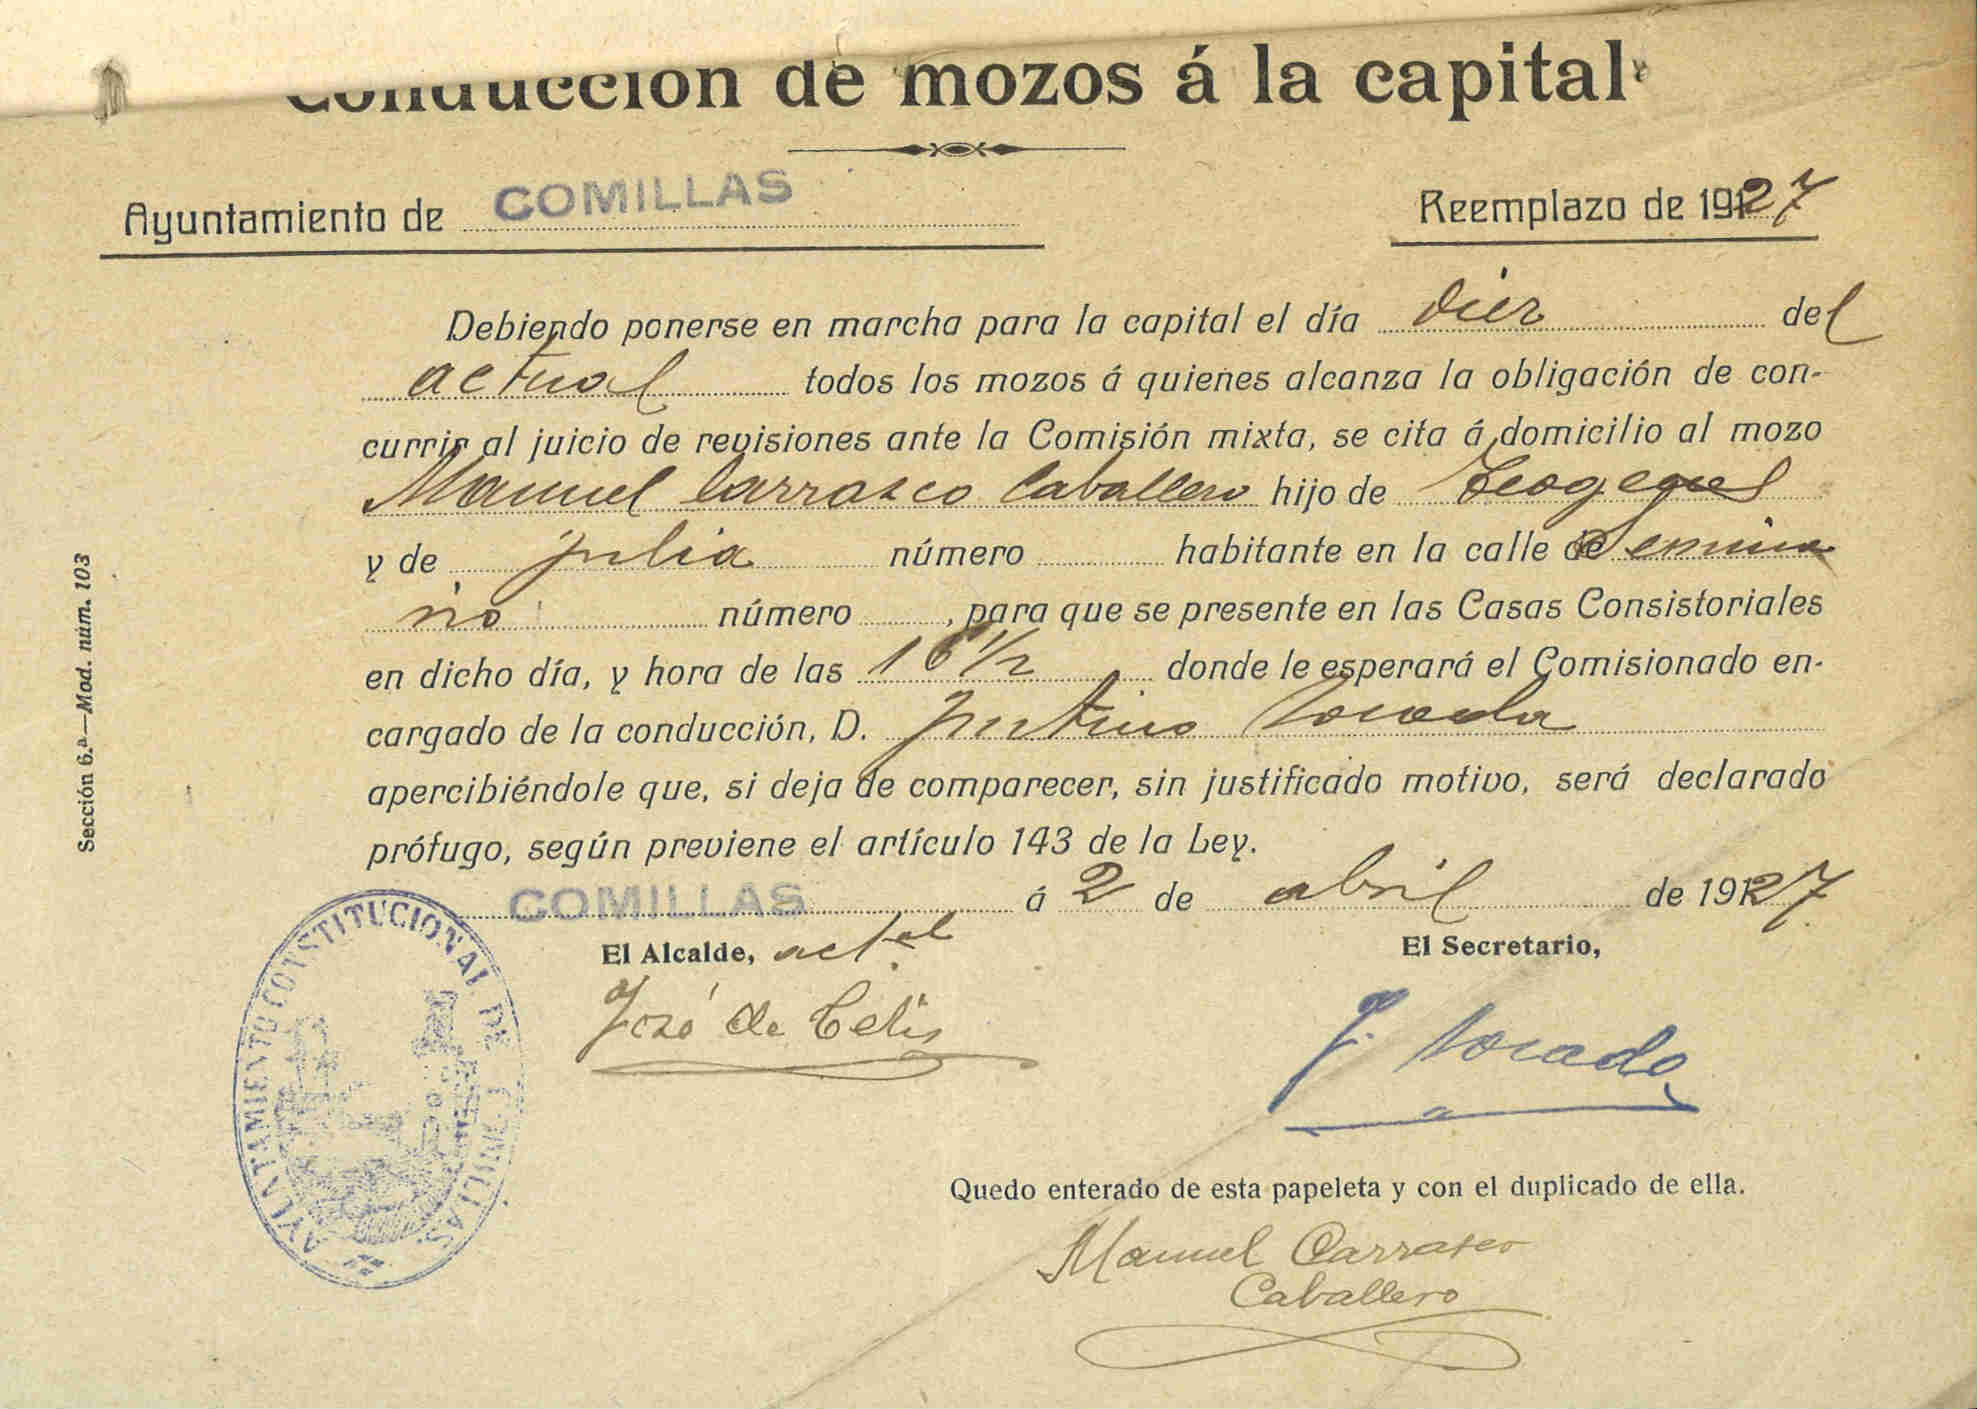 Conducción de mozos á la capital
Ayuntamiento de COMILLAS
Reemplazo de 1927
Debiendo ponerse en marcha para la capital el día diez del
actual todos los mozos á quienes alcanza la obligación de con-
currir al juicio de revisiones ante la Comisión mixta, se cita á domicilio al mozo
Manuel Carrasco Caballero hijo de
y de Julia número habitante en la calle de Semina
rio número , para que se presente en las Casas Consistoriales
en dicho día, y hora de las 16 1/2 donde le esperará el Comisionado en-
cargado de la conducción, D.
apercibiéndole que, si deja de comparecer, sin justificado motivo, será declarado
prófugo, según previene el artículo 143 de la Ley.
COMILLAS á 2 de abril de 1927
El Alcalde, actal
El Secretario,
José de Celis
Quedo enterado de esta papeleta y con el duplicado de ella.
Manuel Carrasco
Caballero
Sección 6.ª—Mod. núm. 103
AYUNTAMIENTO CONSTITUCIONAL DE COMILLAS